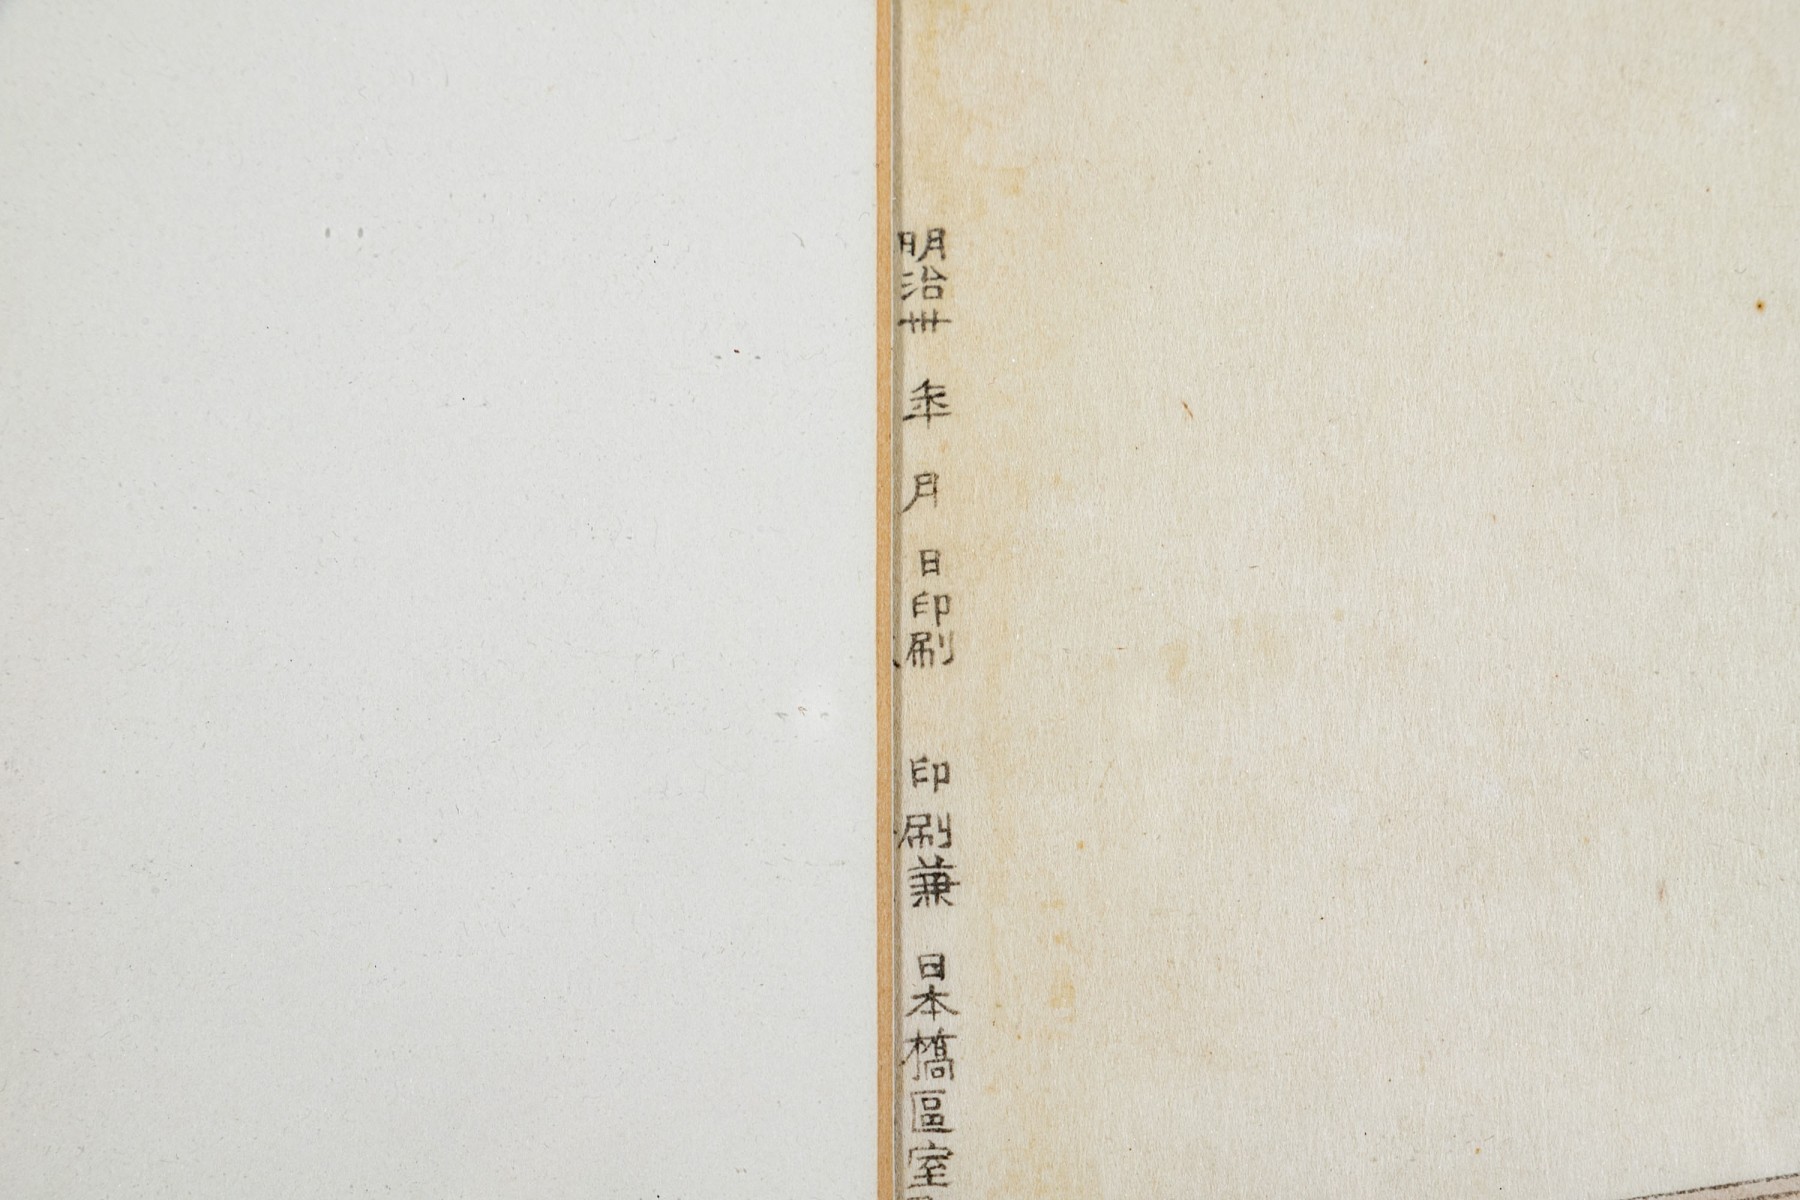 明治卅 年 月 日印刷 印刷兼 日本橋區室